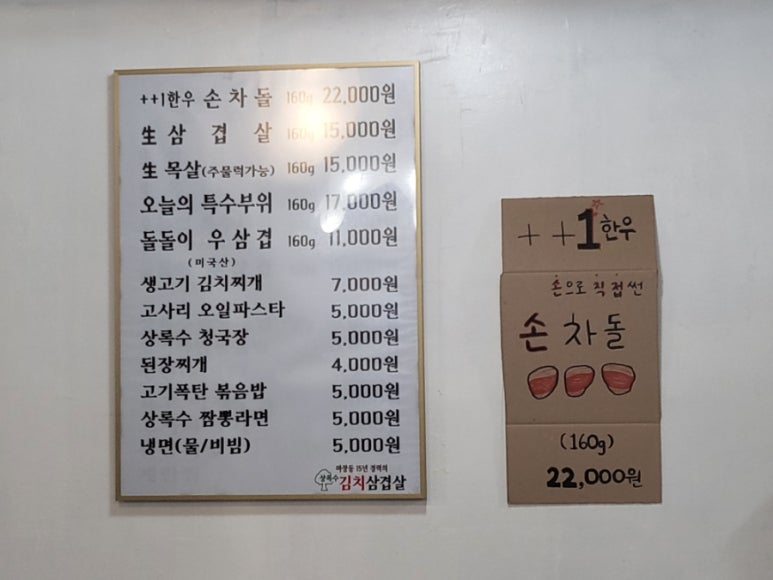 ++1한우 손차돌 160g 22,000원
生삼겹살 160g 15,000원
生목살(주물럭가능) 160g 15,000원
오늘의 특수부위 160g 17,000원
돌돌이 우삼겹 160g 11,000원
(미국산)
생고기 김치찌개 7,000원
고사리 오일파스타 5,000원
상록수 청국장 5,000원
된장찌개 4,000원
고기폭탄 볶음밥 5,000원
상록수 짬뽕라면 5,000원
냉면(물/비빔) 5,000원
마장동 15년 경력의
상록수 김치삼겹살
++1한우
손으로 직접 썬
손차돌
(160g)
22,000원